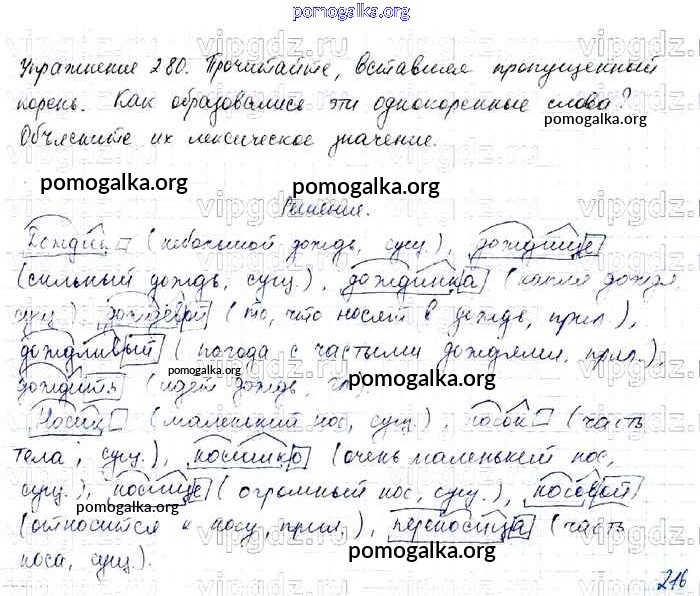 pomogalka.org
Упражнение 280. Прочитайте, вставляя пропущенный
корень. Как образовались эти однокоренные слова?
Объясните их лексическое значение.
pomogalka.org pomogalka.org
Решение.
Дождик (небольшой дождь, сущ.), дождище
(сильный дождь, сущ.), дождинка (капля дождя,
сущ.), дождевой (то, что носят в дождь, прил.),
дождливый (погода с частыми дождями, прил.),
дождится (идет дождь, гл.).
Носик (маленький нос, сущ.), носок (часть
тела, сущ.), носишко (очень маленький нос,
сущ.), носище (огромный нос, сущ.), носовой
(относится к носу, прил.), переносица (часть
носа, сущ.).
pomogalka.org
216